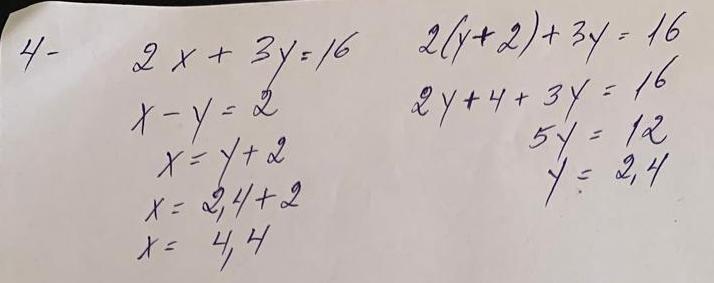 4-
2x + 3y = 16
x - y = 2
x = y + 2
x = 2,4 + 2
x = 4,4
2(y + 2) + 3y = 16
2y + 4 + 3y = 16
5y = 12
y = 2,4